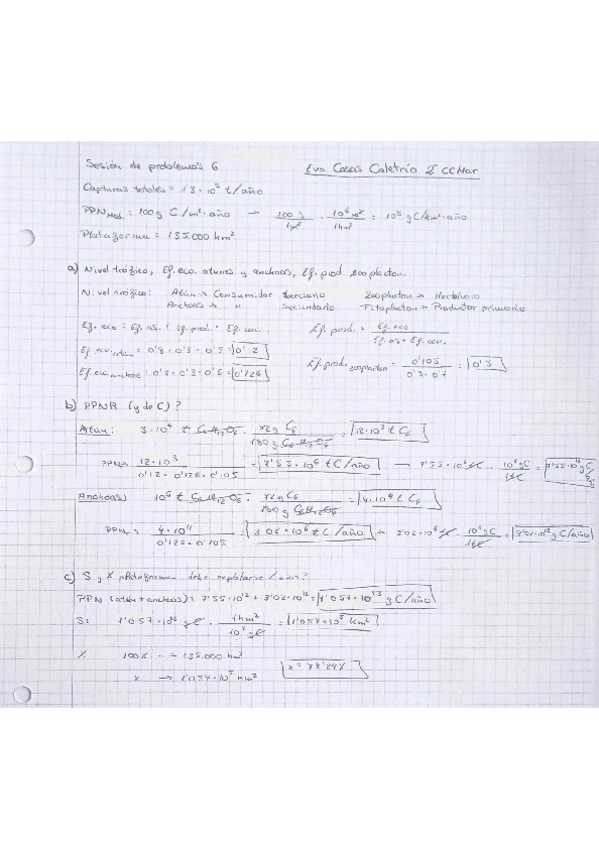 Sesión de problemas 6 Eva Casas Caletrío 2º CCMar
Capturas totales = 13·10⁵ t/año
PPN Med. : 100 g C/m²·año → 100 g / 1 m² · 10⁶ m² / 1 km² = 10⁸ g C/km²·año
Plataforma = 135.000 km²
a) Nivel trófico, Ef. eco atunes y anchoas, Ef. prod. zooplacton.
Nivel trófico: Atún → Consumidor terciario Zooplacton → Herbívoro
Anchoas → " secundario Fitoplacton → Productor primario
Ef. eco = Ef. as. · Ef. prod. · Ef. con. Ef. prod. = Ef. eco / Ef. as · Ef. con.
Ef. eco atún = 0'8 · 0'3 · 0'5 = 0'12
Ef. eco anchoas = 0'7 · 0'3 · 0'6 = 0'126 Ef. prod. zooplacton = 0'105 / 0'3 · 0'7 = 0'5
b) PPNR (y de C)?
Atún: 3·10⁴ t C₆H₁₂O₆ · 72 g C₆ / 180 g C₆H₁₂O₆ = 12·10³ t C₆
PPNR = 12·10³ / 0'12 · 0'126 · 0'105 = 7'55·10⁶ t C/año → 7'55·10⁶ t C · 10⁶ g C / 1 t C = 7'55·10¹² g C/año
Anchoas: 10⁵ t C₆H₁₂O₆ · 72 g C₆ / 180 g C₆H₁₂O₆ = 4·10⁴ t C₆
PPNR = 4·10⁴ / 0'126 · 0'105 = 3'02·10⁶ t C/año → 3'02·10⁶ t C · 10⁶ g C / 1 t C = 3'02·10¹² g C/año
c) S y % plataforma debe explotarse / años?
PPN (atún + anchoas) = 7'55·10¹² + 3'02·10¹² = 1'057·10¹³ g C/año
S: 1'057·10¹³ g C · 1 km² / 10⁸ g C = 1'057·10⁵ km²
% 100% → 135.000 km²
x → 1'057·10⁵ km² x = 78'29%